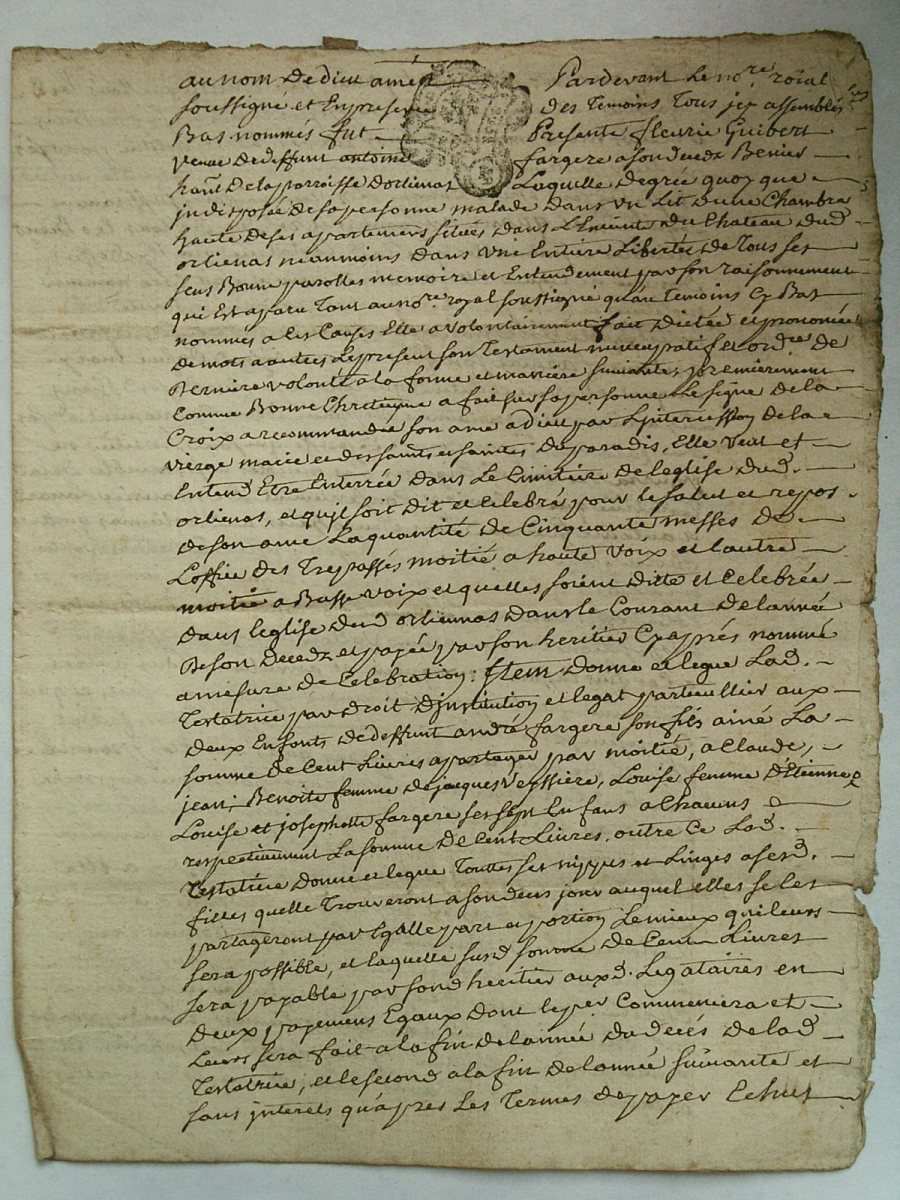 au nom de dieu amen Pardevant Le no.re roial
soussigné et En presence des Temoins Tous jcy assemblés
Bas nommés fut Presente fleurie Guibert
veuve de deffunt antoine fargere a son deceds
hant. De la parroisse dorlienas Laquelle de gré quoy que
jndisposée de sa personne malade dans un Lit dune Chambre
haute de ses apartemens situés dans du Chateau dud.
orlienas neanmoins dans une Entiere Liberté de Tous ses
sens Bonne parolle memoire et Entendement par son raisonnement
qui Est aparu Tant au no.re royal soussigné quau Temoins Cy Bas
nommés a les Causes Elle a volontairement fait dictée et prononcée
de mots a autres Le present son Testament nuncupatif et ord.ce de
Derniere volonté a la forme et maniere suivante; premierement
Comme Bonne Chretienne a fait sur sa personne Le signe de la
Croix a recommandée son ame a dieu par Ljntercession de la
vierge marie et des saints et saintes du paradis, Elle veut et
Entend Etre Enterrée dans Le Cimitiere de leglise dud.
orlienas, et qujl soit dit et Celebré pour le salut et repos
de son ame La quantité de Cinquante messes de
Loffice des Trepassés moitié a haute voix et lautre
moitié a Basse voix et quelles soient ditte et Celebrée
dans leglise dud. orliennas dans le Courant de lannée
de son deceds et payée par son heritier Cy aprés nommé
a mesure de Celebration; Jtem donne et legue Lad.
Testatrice par droit djnstitution et legat particullier aux
deux Enfants de deffunt andré fargere son fils ainé La
somme de Cent Livres a partager par moitié, a Claude,
jean, Benoite femme de jacques veyssiere, Louise femme dEtienne
Louise et josephette fargere ses sept Enfans a Chacuns
respectivement La somme de Cent Livres, outre Ce Lad.
Testatrice donne et legue Touttes ses nippes et Linges a sesd.
filles quelle Trouveront a son deces jour auquel elles se les
partageront par Egalle part et portion Le mieux qui leurs
sera possible, et laquelle susd. somme de Cent Livres
sera payable par sond. heritier auxd. Legataires en
deux payemens Egaux dont le p.er Commencera et
Leurs sera fait a la fin de lannée du decés de lad.
Testatrice, et le second a la fin de lannée suivante et
sans jnterets quapres Les Termes de payer Echut